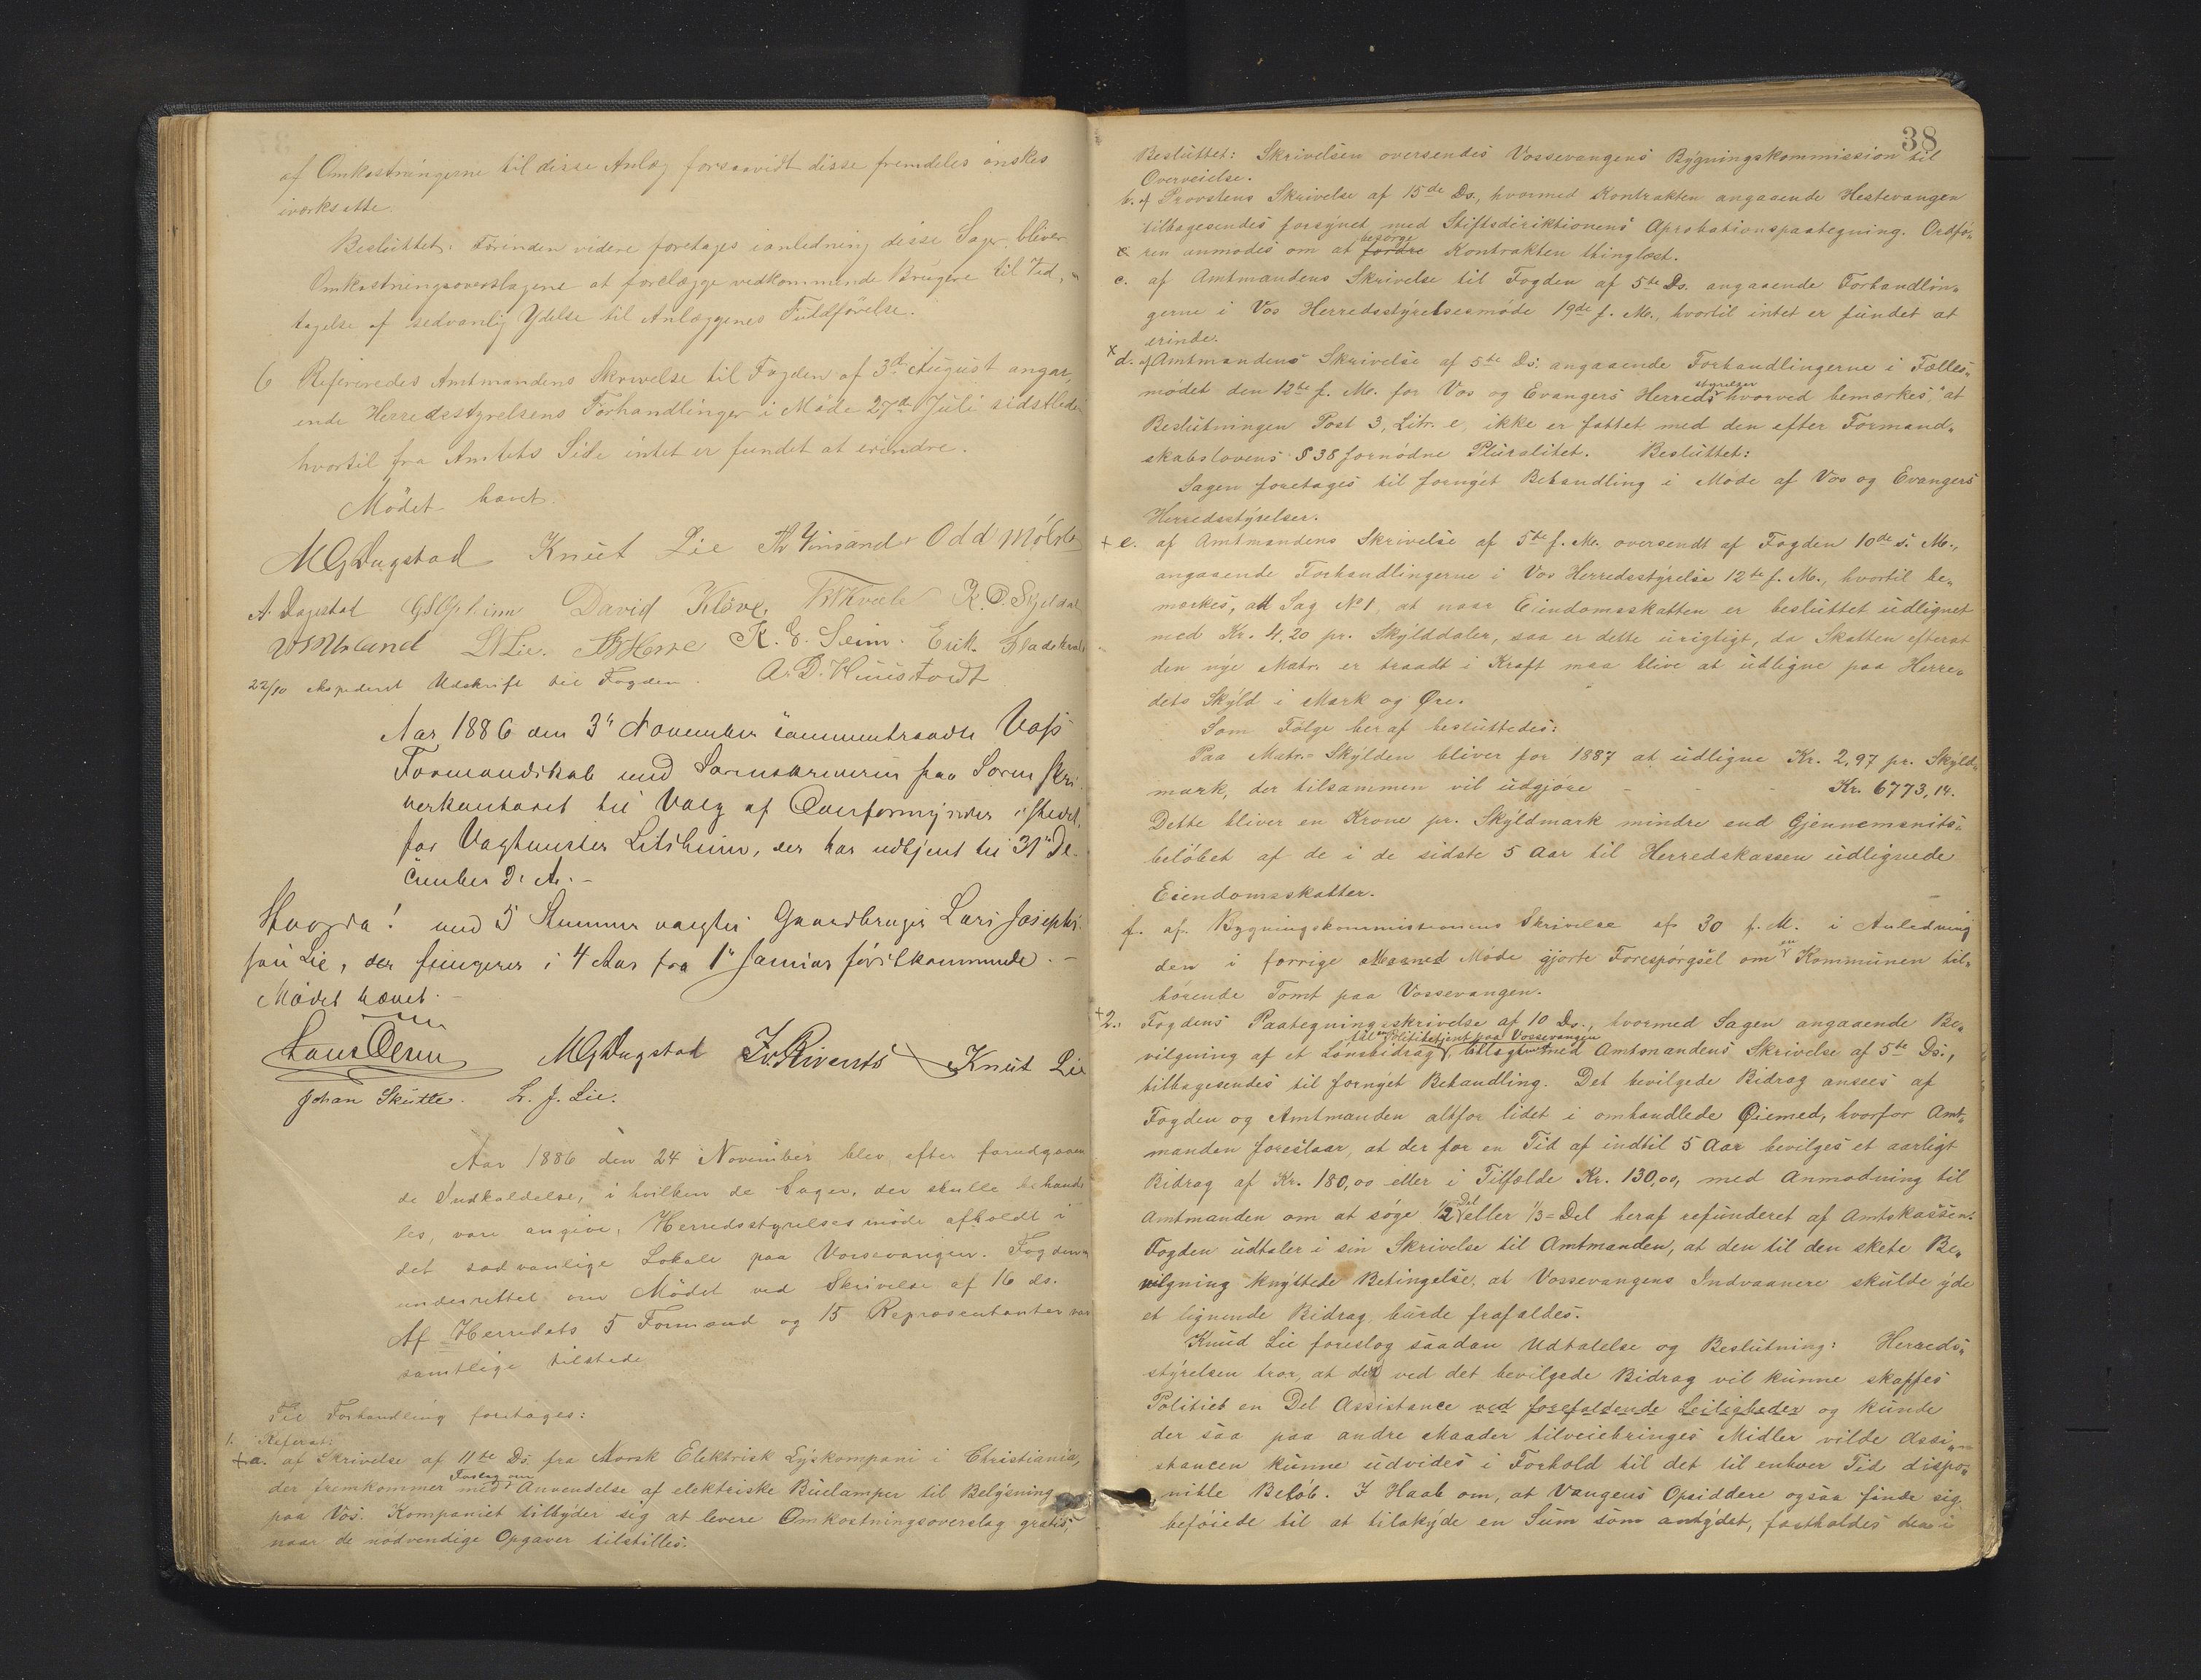 af Omkostningerne til disse Anlæg forsaavidt disse fremdeles ønskes
iværksatte.
Besluttet: Førinden videre foretages i anledning disse Sager, bliver
Omkostningsoverslagene at forelægge vedkommende Brugere til Ved-
tagelse af sedvanlig Ydelse til Anlæggenes Fuldførelse.
6 Refereredes Amtmandens Skrivelse til Fogden af 3d August angaa,
ende Herredsstyrelsens Forhandlinger i Møde 27de Juli sidstleden
hvortil fra Amtets Side intet er fundet at erindre.
Mødet hævet.
MGDugstad Knut Lie Th Vinsand Odd Mølster
A. Dagestad David Kløve. K. O. Gjeldal
L Lie. K. E. Seim. Erik
22/10 ekspederet Udskrift til Fogden. A. D.
Aar 1886 den 3de November sammentraadte Voss
Formandskab med Sorenskriveren paa Soren skri
verkontoret til Valg af Overformynder istedet
for Vagtmester Litsheim, der har udtjent til 31te De-
cember d. A. -
Hvorda! med 5 Stemmer valgtes Gaardbruger Lars Joseph-
son Lie, der fungerer i 4 Aar fra 1ste Januar førstkommende. -
Mødet hævet. -
MGDugstad Knut Lie
Johan Skutle. L. J. Lie.
Aar 1886 den 24 November blev, efter forudgaaen
de Indkaldelse, i hvilken de Sager, der skulle behand
les, vare angivne, Herredsstyrelsesmøde afholdt i
det sædvanlige Lokale paa Vossevangen. Fogden
underrettet om Mødet ved Skrivelse af 16 ds.
Af Herredets 5 Formænd og 15 Repræsentanter var
samtlige tilstede
Til Forhandling foretages:
1. Referat:
+a. af Skrivelse af 11te Ds. fra Norsk Elektrisk Lyskompani i Christiania,
der fremkommer med Forslag om Anvendelse af elektriske Buelamper til Belysning
paa Vos. Kompaniet tilbyder sig at levere Omkostningsoverslag gratis,
naar de nødvendige Opgaver tilstilles.
38
Besluttet: Skrivelsen oversendes Vossevangens Bygningskommission til
Overveielse.
b. af Provstens Skrivelse af 15de Ds., hvormed Kontrakten angaaende Hestevangen
tilbagesendes forsynet med Stiftsdirektionens Aprobationspaategning. Ordfø-
x ren anmodes om at fordre besørge Kontrakten thinglæst.
c. af Amtmandens Skrivelse til Fogden af 5te Ds. angaaende Forhandlin-
gerne i Vos Herredsstyrelsesmøde 19de f. M., hvortil intet er fundet at
erindre.
x d. af Amtmandens Skrivelse af 5te Ds. angaaende Forhandlingerne i Fælles-
mødet den 12te f. M. for Vos og Evangers Herreds styrelser hvorved bemærkes, at
Beslutningen Post 3, Litr. e, ikke er fattet med den efter Formand-
skabslovens § 38 fornødne Pluralitet. Besluttet:
Sagen foretages til fornyet Behandling i Møde af Vos og Evangers
Herredsstyrelser.
+ e. af Amtmandens Skrivelse af 5te f. M. oversendt af Fogden 10de s. M.,
angaaende Forhandlingerne i Vos Herredsstyrelse 12te f. M., hvortil be-
mærkes, ad Sag No 1, at naar Eiendomsskatten er besluttet udlignet
med Kr. 4,20 pr. Skylddaler, saa er dette urigtigt, da Skatten efterat
den nye Matr. er traadt i Kraft maa blive at udligne paa Herre-
dets Skyld i Mark og Øre.
Som Følge heraf besluttedes:
Paa Matr.-Skylden bliver for 1887 at udligne Kr. 2,97 pr. Skyld-
mark, der tilsammen vil udgjøre - - - Kr. 6773,14.
Dette bliver en Krone pr. Skyldmark mindre end Gjennemsnits-
beløbet af de i de sidste 5 Aar til Herredskassen udlignede
Eiendomsskatter.
f. af Bygningskommissionens Skrivelse af 30 f. M. i Anledning
den i forrige Maaned Møde gjorte Forespørgsel om en Kommunen til-
hørende Tomt paa Vossevangen.
+2. Fogdens Paategningsskrivelse af 10 Ds., hvormed Sagen angaaende Be-
vilgning af et Lønsbidrag til en Politibetjent paa Vossevangen med Amtmandens Skrivelse af 5te Ds.,
tilbagesendes til fornyet Behandling. Det bevilgede Bidrag ansees af
Fogden og Amtmanden altfor lidet i omhandlede Øiemed, hvorfor Amt-
manden foreslaar, at der for en Tid af indtil 5 Aar bevilges et aarligt
Bidrag af Kr. 180,00 eller i Tilfælde Kr. 130,00, med Anmodning til
Amtmanden om at søge 1/2 Del eller 1/3-Del heraf refunderet af Amtskassen.
Fogden udtaler i sin Skrivelse til Amtmanden, at den til den skete Be-
vilgning knyttede Betingelse, at Vossevangens Indvaanere skulde yde
et lignende Bidrag, burde frafaldes.
Knud Lie foreslog saadan Udtalelse og Beslutning: Herreds-
styrelsen tror, at der ved det bevilgede Bidrag vil kunne skaffes
Politiet en Del Assistance ved forefaldende Leiligheder og kunde
der saa paa andre Maader tilveiebringes Midler vilde Assi-
stancen kunne udvides i Forhold til det til enhver Tid dispo-
nible Beløb. I Haab om, at Vangens Opsiddere ogsaa finde sig
beføiede til at tilskyde en Sum som antydet, fastholdes den i